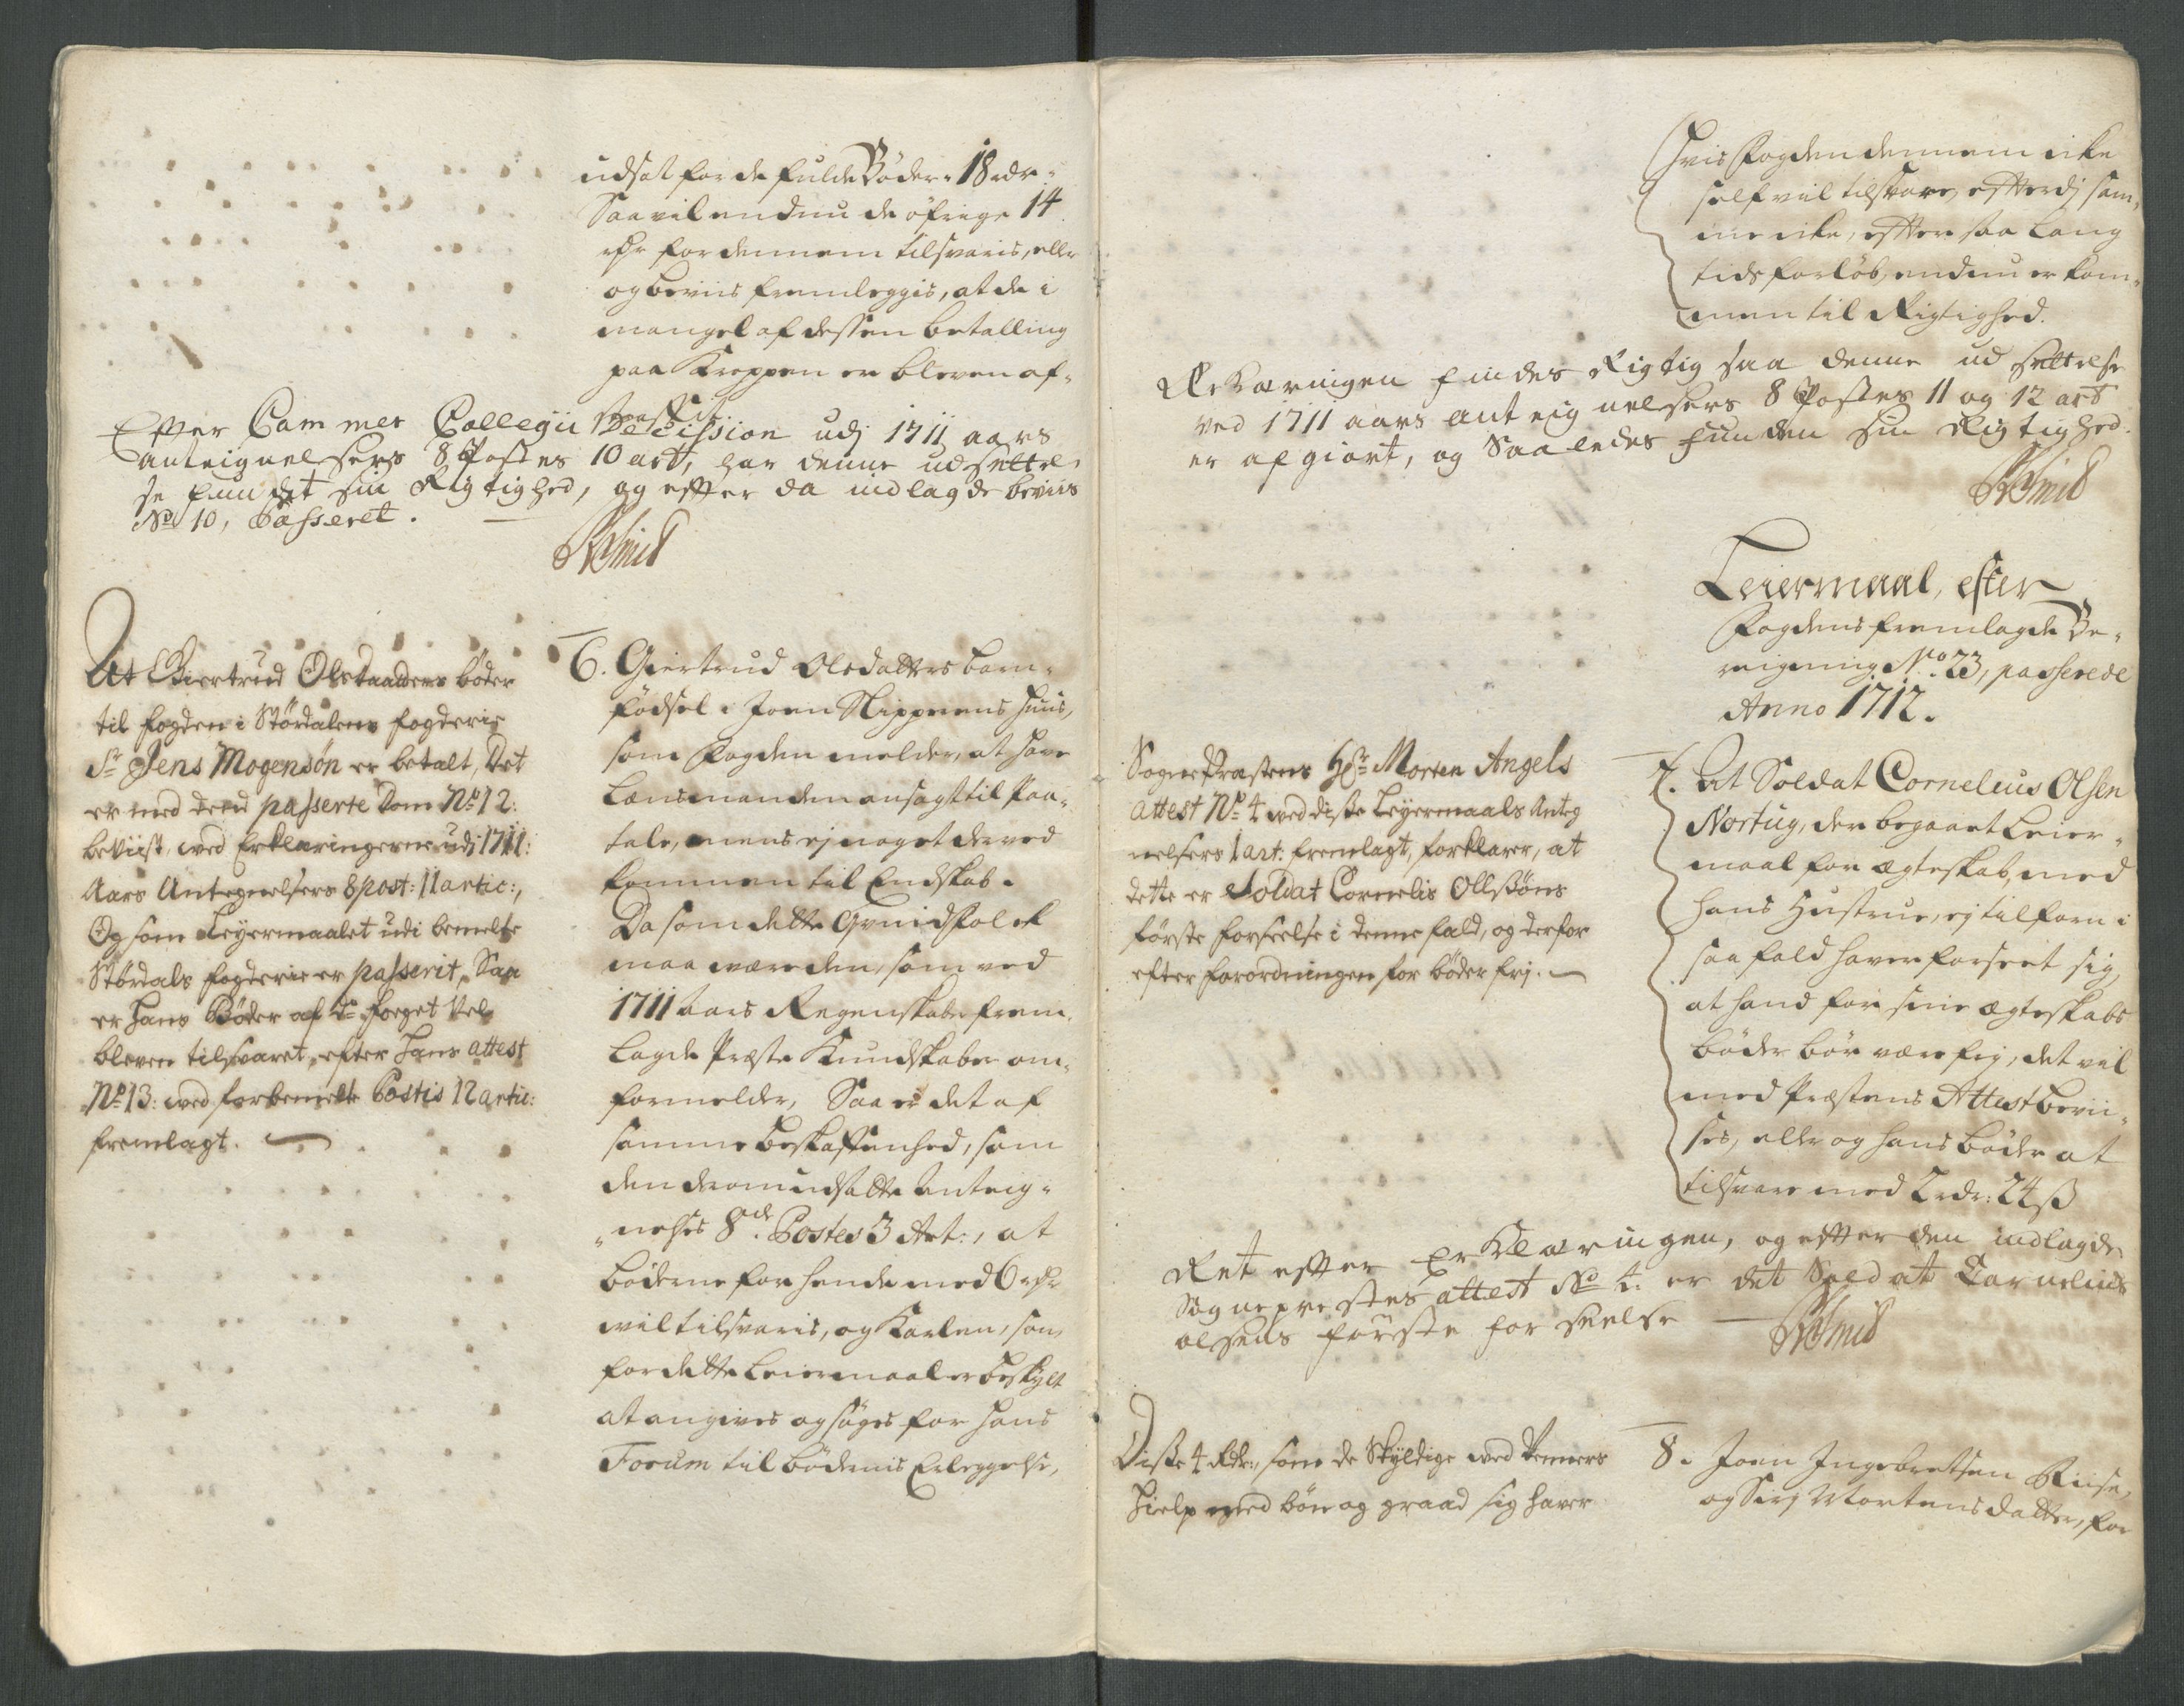 udsat for de fulde Bøder 18 rdr.
Saa vil endnu de øfrige 14
rdr for dennem tilsvaris, eller
og beviis fremleggis, at de i
mangel af dessen betalling
paa Kroppen er bleven af-
straffet.
Effter Cammer Collegii Decission udj 1711 aars
anteignelsers 8 Postes 10 art, har denne udsettel-
se fundet sin Rigtighed, og effter da indlagde beviis
No 10, Passeret.
At Giertrud Olsdaatters bøder
til fogden i Størdalens fogderie
Sr Jens Mogensøn er betalt, Det
er med dend passerte Dom No 12:
beviist, ved Erklæringerne udj 1711:
Aars Antegnelsers 8 post: 11 artic:,
Og som Leyermaalet udi bemelte
Størdals fogderie er passerit, Saa
er hans Bøder af
bleven tilsvaret, efter hans attest
No 13: ved forbemelte Postis 12 artic:
fremlagt.
6. Giertrud Olsdatters barn-
fødsel i Joen Klippenens huus,
som Fogden melder, at have
Lensmanden ansagt til Paa-
tale, mens ej noget derved
kommen til Endskab.
Da som dette Qvindfolk
maa være den, som ved
1711 aars Regenskabs frem-
lagde Præste Kundskaber om-
formelder, Saa er det af
samme beskaffenhed, som
den derom udsatte Anteig-
nelses 8de Postes 3 Art:, at
bøderne for hende med 6 rdr
vil tilsvaris, og Karlen, som
for dette Leiermaal er beskylt
at angives og søges for hans
Forum til bødernis Erleggelse,
Hvis Fogden dennem icke
self vil tilsvare, effterdj sam-
me icke, effter saa lang
tids forløb, endnu er kom-
men til Rigtighed.
Erklæringen findes Rigtig saa denne udsettelse
ved 1711 aars anteignelsers 8 Postes 11 og 12 art
er afgiort, og Saaledes funden sin Rigtighed.
Leiermaal, efter
Fogdens fremlagde Be-
reigning No. 23, passerede
Anno 1712.
Sognepræstens Hr Morten Angels
attest No 4 ved disse Leyermaals Anteg
nelsers 1 art: fremlagt, forklarer, at
dette er Soldat Cornelis Ollsøns
første forseelse i denne fald, og derfor
efter forordningen for bøder frj.
7. At Soldat Cornelius Olsen
Nortug, der begaaet Leier-
maal for ægteskab, med
hans Hustrue, ej tilforn i
saa fald haver forseet sig,
at hand for sine ægteskabs
bøder bør være frj, det vil
med Præstens Attest bevii-
ses, eller og hans bøder at
tilsvare med 2 rdr: 24 ß
Ret effter Erklæringen, og effter den indlagde
Sogneprestes attest No 4 er det Soldat Cornelius
olsens første forseelse
Disse 4 Rdr:, som de Skyldige ved Venners
hielp med bøn og graad sig haver
8. Joen Ingebretsen Riise,
og Sirj Mortensdatter, for